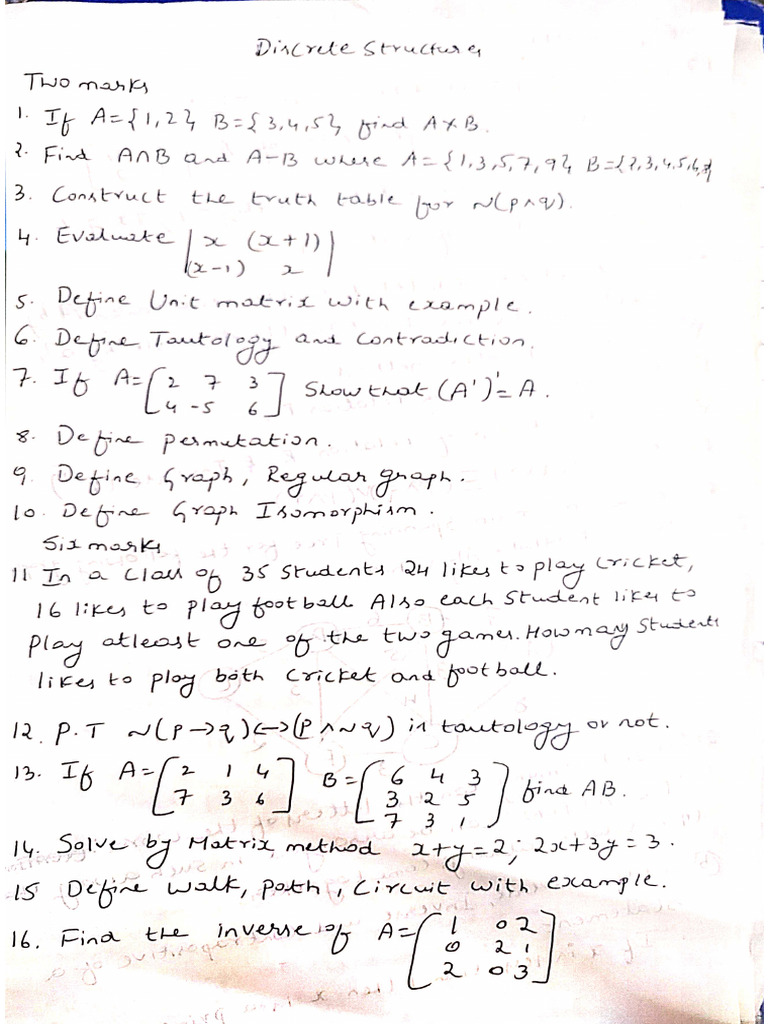 Discrete Structures
Two marks
1. If A={1,2} B={3,4,5} find A×B.
2. Find A∩B and A-B where A={1,3,5,7,9} B={2,3,4,5,6,
3. Construct the truth table for ~(p∧q).
4. Evaluate | x (x+1) |
(x-1) x
5. Define Unit matrix with example.
6. Define Tautology and contradiction.
7. If A=[ 2 7 3 ] Show that (A')'=A.
4 -5 6
8. Define permutation.
9. Define Graph, Regular graph.
10. Define Graph Isomorphism.
Six marks
11 In a class of 35 students 24 likes to play cricket,
16 likes to play football Also each student likes to
play atleast one of the two games. How many students
likes to play both cricket and football.
12. P.T ~(p→q)↔(p∧~q) is tautology or not.
13. If A=[ 2 1 4 ] B=[ 6 4 3 ] find AB.
7 3 6 3 2 5
7 3 1
14. Solve by Matrix method x+y=2; 2x+3y=3.
15 Define walk, path, circuit with example.
16. Find the inverse of A=[ 1 0 2 ]
0 2 1
2 0 3